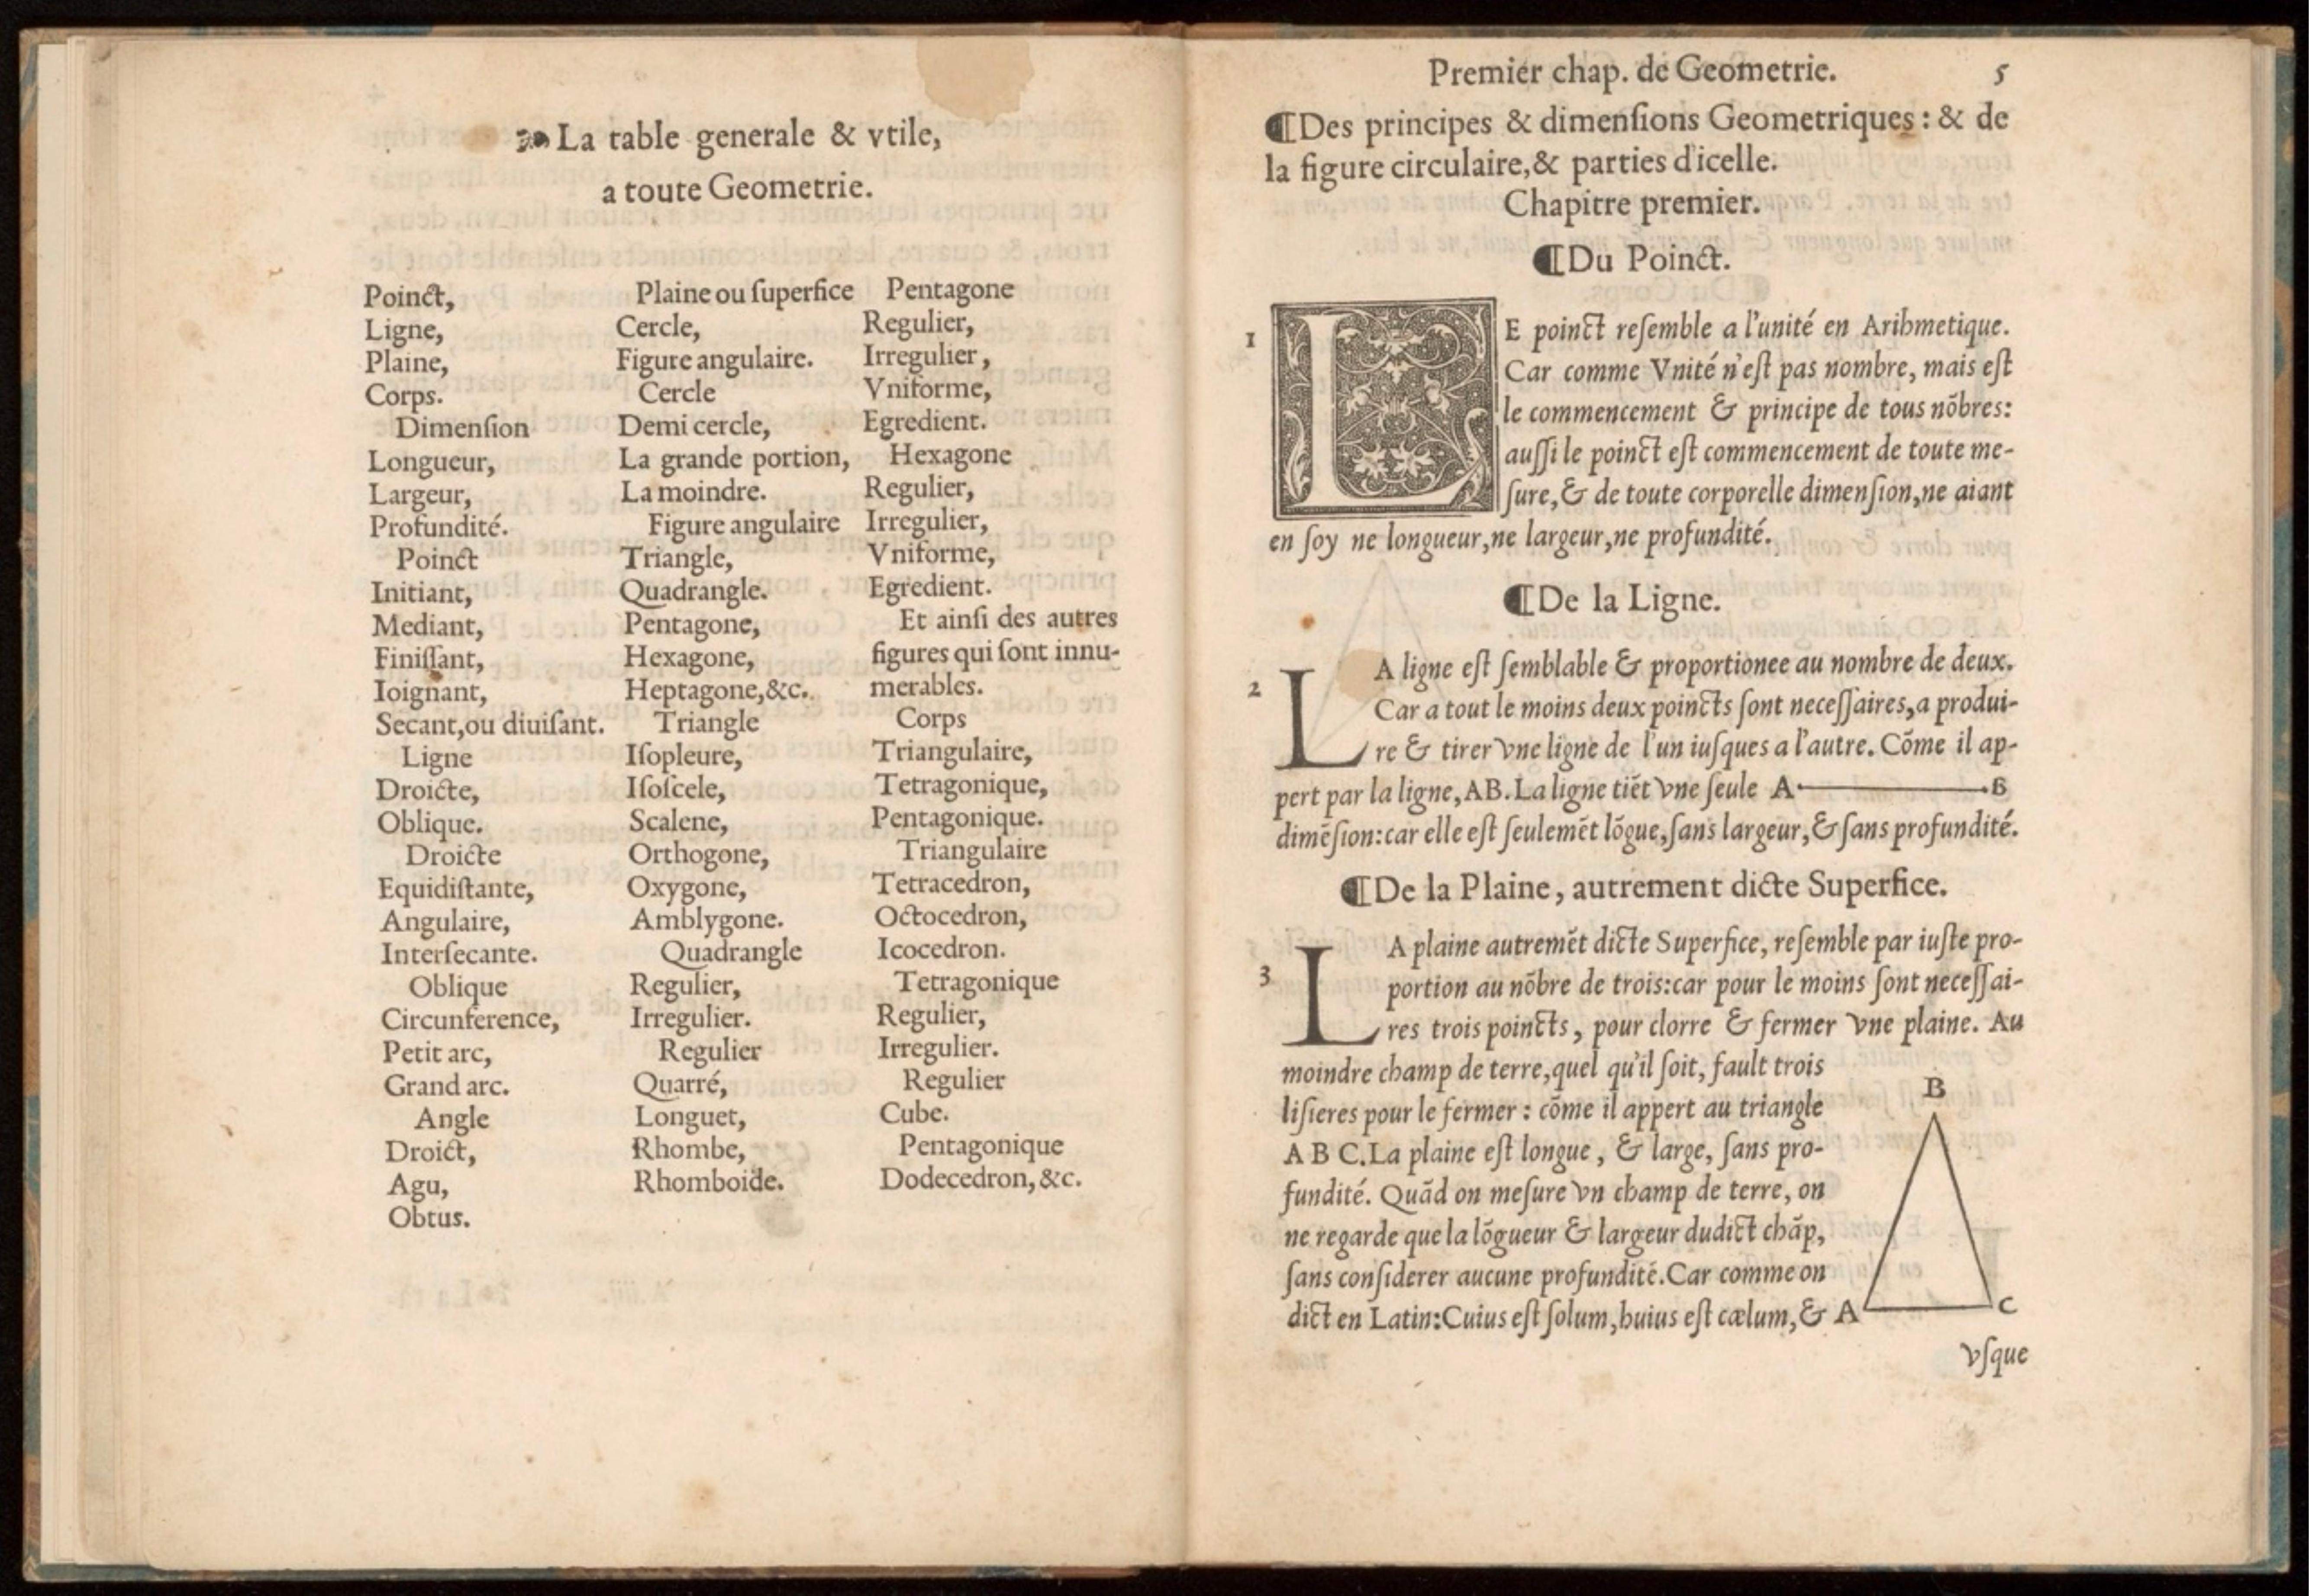 La table generale & vtile,
a toute Geometrie.
Poinct,
Ligne,
Plaine,
Corps.
Dimenſion
Longueur,
Largeur,
Profundité.
Poinct
Initiant,
Mediant,
Finiſſant,
Ioignant,
Secant,ou diuiſant.
Ligne
Droicte,
Oblique.
Droicte
Equidiſtante,
Angulaire,
Interſecante.
Oblique
Circunference,
Petit arc,
Grand arc.
Angle
Droict,
Agu,
Obtus.
Plaine ou ſuperfice
Cercle,
Figure angulaire.
Cercle
Demi cercle,
La grande portion,
La moindre.
Figure angulaire
Triangle,
Quadrangle.
Pentagone,
Hexagone,
Heptagone,&c.
Triangle
Iſopleure,
Iſoſcele,
Scalene,
Orthogone,
Oxygone,
Amblygone.
Quadrangle
Regulier,
Irregulier.
Regulier
Quarré,
Longuet,
Rhombe,
Rhomboïde.
Pentagone
Regulier,
Irregulier,
Vniforme,
Egredient.
Hexagone
Regulier,
Irregulier,
Vniforme,
Egredient.
Et ainſi des autres
figures qui ſont innu-
merables.
Corps
Triangulaire,
Tetragonique,
Pentagonique.
Triangulaire
Tetracedron,
Octocedron,
Icocedron.
Tetragonique
Regulier,
Irregulier.
Regulier
Cube.
Pentagonique
Dodecedron,&c.
Premier chap. de Geometrie. 5
¶Des principes & dimenſions Geometriques : & de
la figure circulaire,& parties d'icelle.
Chapitre premier.
¶Du Poinct.
1 LE poinct reſemble a l'unité en Arihmetique.
Car comme Vnité n'eſt pas nombre, mais eſt
le commencement & principe de tous nõbres:
auſſi le poinct eſt commencement de toute me-
ſure,& de toute corporelle dimenſion,ne aiant
en ſoy ne longueur,ne largeur,ne profundité.
¶De la Ligne.
2 LA ligne eſt ſemblable & proportionee au nombre de deux.
Car a tout le moins deux poincts ſont neceſſaires,a produi-
re & tirer vne ligne de l'un iuſques a l'autre. Cõme il ap-
pert par la ligne,AB.La ligne tiẽt vne ſeule A B
dimẽſion:car elle eſt ſeulemẽt lõgue,ſans largeur,&ſans profundité.
¶De la Plaine, autrement dicte Superfice.
3 LA plaine autremẽt dicte Superfice, reſemble par iuſte pro-
portion au nõbre de trois:car pour le moins ſont neceſſai-
res trois poincts, pour clorre & fermer vne plaine. Au
moindre champ de terre,quel qu'il ſoit, fault trois
liſieres pour le fermer : cõme il appert au triangle
A B C.La plaine eſt longue, & large, ſans pro-
fundité. Quãd on meſure vn champ de terre, on
ne regarde que la lõgueur & largeur dudict chãp,
ſans conſiderer aucune profundité.Car comme on
dict en Latin:Cuius eſt ſolum,huius eſt cælum,&
B
A
C
vſque